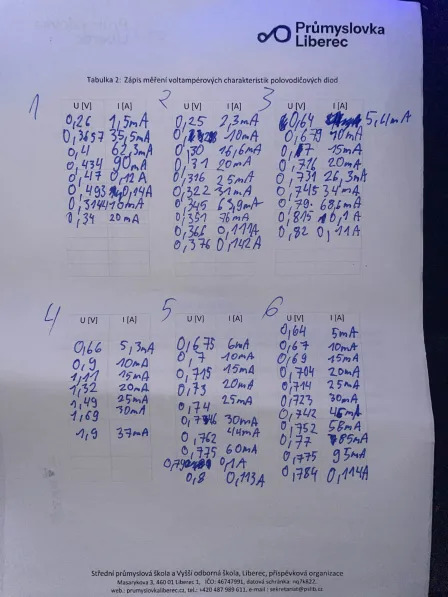 Průmyslovka
Liberec
Tabulka 2: Zápis měření voltampérových charakteristik polovodičových diod
1
U [V] I [A]
0,26 1,5mA
0,3657 35,5mA
0,4 62,3mA
0,434 90mA
0,47 0,12A
0,493 0,14A
0,3144 10mA
0,34 20mA
2
U [V] I [A]
0,25 2,3mA
10mA
0,30 16,6mA
0,31 20mA
0,316 25mA
0,322 31mA
0,345 63,9mA
0,351 76mA
0,366 0,111A
0,376 0,142A
3
U [V] I [A]
0,64 5,4mA
0,679 10mA
0,7 15mA
0,716 20mA
0,731 26,3mA
0,745 34mA
0,79 68,6mA
0,815 0,1A
0,82 0,11A
4
U [V] I [A]
0,66 5,3mA
0,9 10mA
1,11 15mA
1,32 20mA
1,49 25mA
1,69 30mA
1,9 37mA
5
U [V] I [A]
0,673 6mA
0,7 10mA
0,715 15mA
0,73 20mA
0,74 25mA
30mA
0,762 44mA
0,775 60mA
0,79 0,1A
0,8 0,113A
6
U [V] I [A]
0,64 5mA
0,67 10mA
0,69 15mA
0,704 20mA
0,714 25mA
0,723 30mA
0,742 45mA
0,752 58mA
0,77 85mA
0,775 95mA
0,784 0,114A
Střední průmyslová škola a Vyšší odborná škola, Liberec, příspěvková organizace
Masarykova 3, 460 01 Liberec 1, IČO: 46747991, datová schránka: nq7k822,
web.: prumyslovkaliberec.cz, tel.: +420 487 989 611, e-mail : sekretariat@pslib.cz